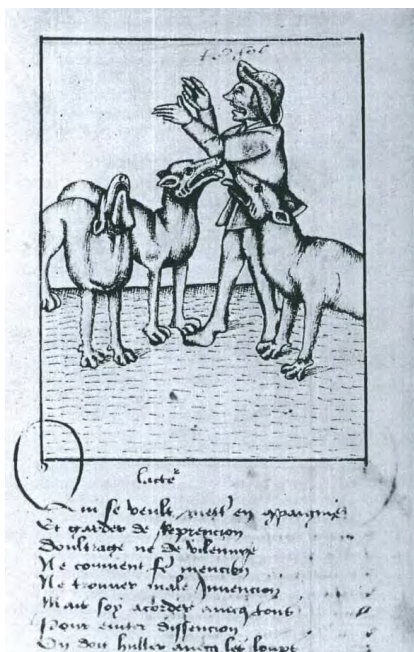 lacte^r
Qui se veult mest^r en (com)paignie
Et garder de Reprencion
Doultrage ne de vilennye
Ne comment f^e mencion
Ne trouver male Invencion
Mais soy acorder avecq tous
Pour eviter dissencion
On doit huller avecq les loups